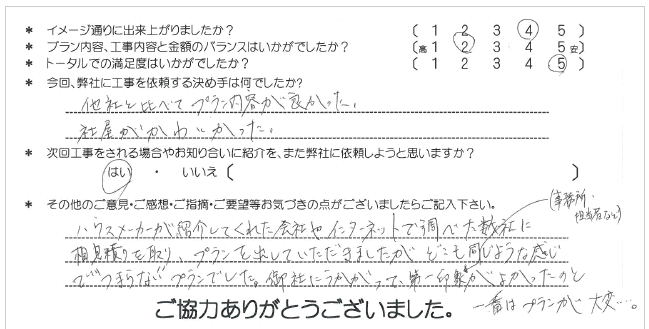 * イメージ通りに出来上がりましたか? 〔 1 2 3 4 5 〕
* プラン内容、工事内容と金額のバランスはいかがでしたか? 〔高 1 2 3 4 5 安〕
* トータルでの満足度はいかがでしたか? 〔 1 2 3 4 5 〕
* 今回、弊社に工事を依頼する決め手は何でしたか?
他社と比べてプラン内容が良かった。
社屋がかわいかった。
* 次回工事をされる場合やお知り合いに紹介を、また弊社に依頼しようと思いますか?
はい ・ いいえ〔 〕
* その他のご意見・ご感想・ご指摘・ご要望等お気づきの点がございましたらご記入下さい。
(事務所、
担当者など)
ハウスメーカーが紹介してくれた会社やインターネットで調べた数社に
相見積りを取り、プランを出していただきましたが どこも同じような感じ
で“つまらない”プランでした。御社にうかがって、第一印象がよかったのと
一番はプランが 大変…。
ご協力ありがとうございました。